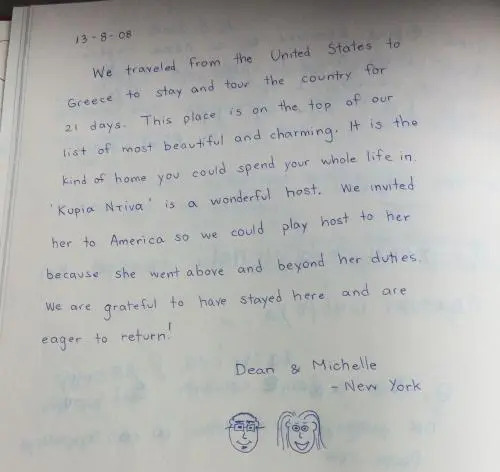 13-8-08
We traveled from the United States to
Greece to stay and tour the country for
21 days. This place is on the top of our
list of most beautiful and charming. It is the
kind of home you could spend your whole life in.
'Kupia Nτiva' is a wonderful host. We invited
her to America so we could play host to her
because she went above and beyond her duties.
We are grateful to have stayed here and are
eager to return!
Dean & Michelle
- New York